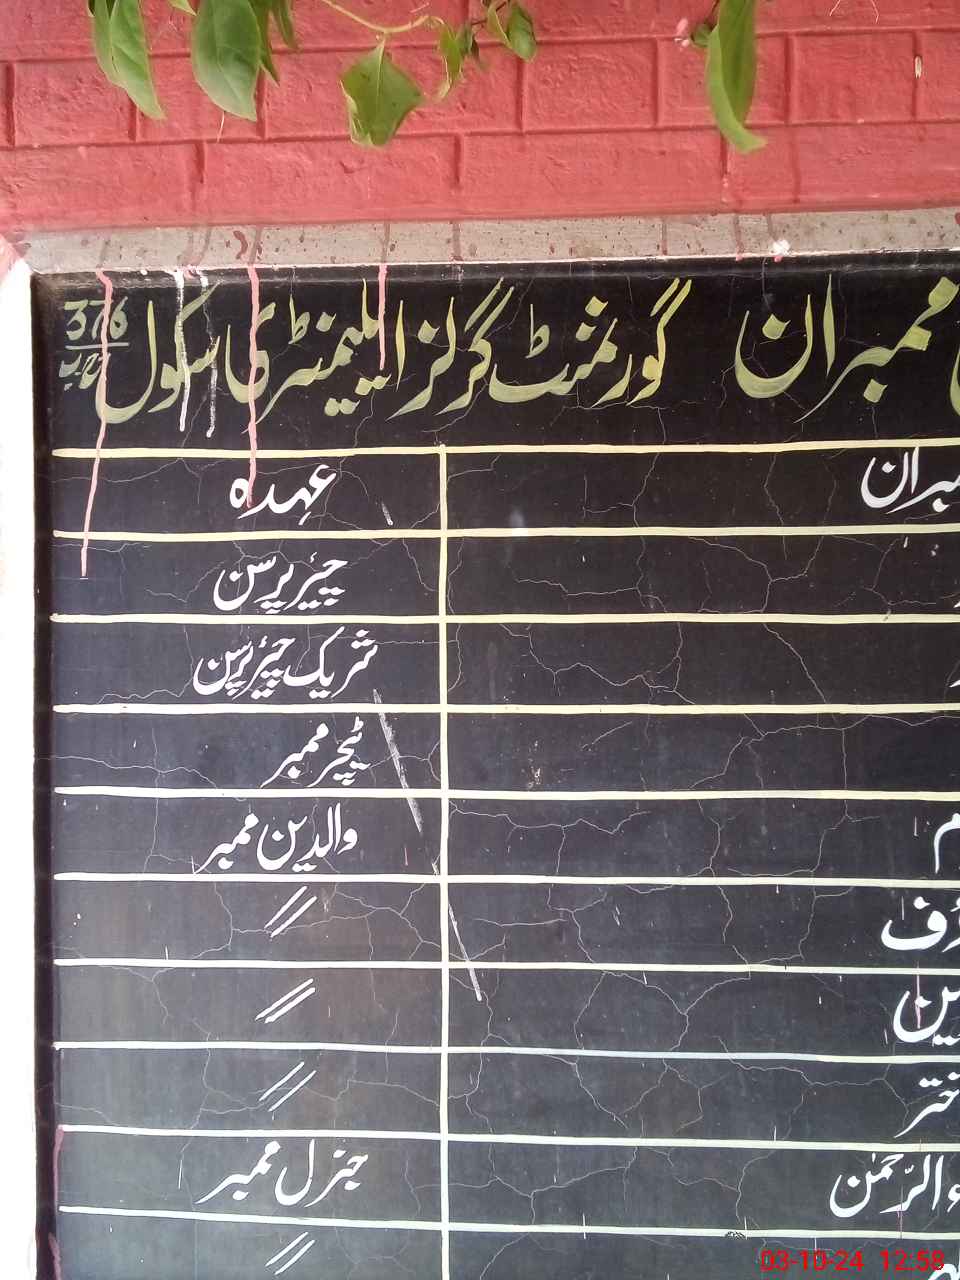 ممبران گورنمنٹ گرلز ایلیمنٹری سکول 376 ج ب
عہدہ
چیئر پرسن
شریک چیئر پرسن
ٹیچر ممبر
والدین ممبر
〃
〃
〃
جنرل ممبر
〃
03-10-24 12:58